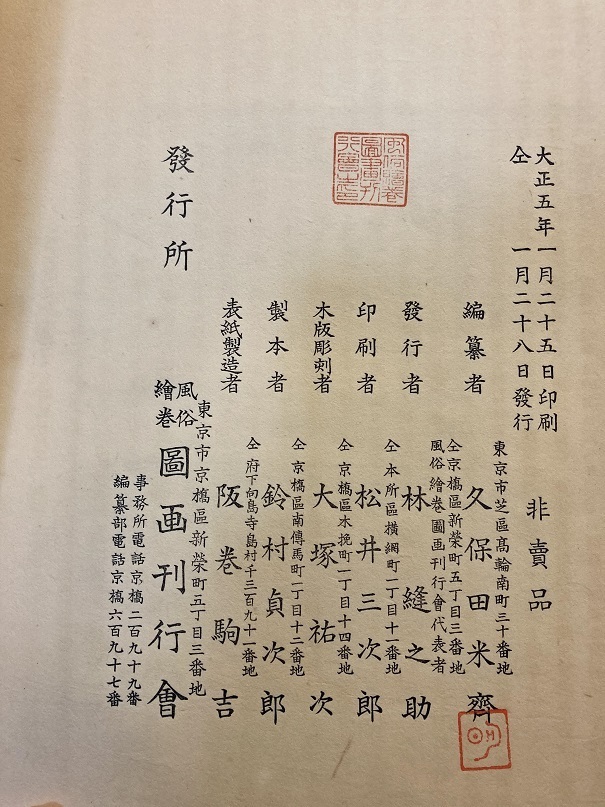 大正五年一月二十五日印刷
仝一月二十八日發行
非賣品
編纂者
東京市芝區高輪南町三十番地
久保田米齊
發行者
仝京橋區新榮町五丁目三番地
風俗繪卷圖画刊行會代表者
林縫之助
印刷者
仝本所區横網町一丁目十一番地
松井三次郎
木版彫刻者
仝京橋區木挽町一丁目十四番地
大塚祐次
製本者
仝京橋區南傳馬町一丁目十二番地
鈴村貞次郎
表紙製造者
仝府下向島寺島村千三百九十一番地
阪巻駒吉
發行所
東京市京橋區新榮町五丁目三番地
風俗繪卷圖画刊行會
事務所電話京橋二百九十九番
編纂部電話京橋六百九十七番
風俗繪卷
圖畫刊
行會之印